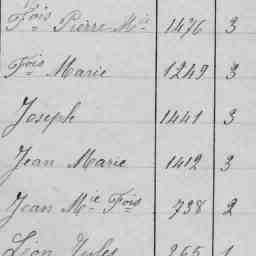 Fois Pierre Mie 1476 3
Fois Marie 1249 3
Joseph 1441 3
Jean Marie 1412 3
Jean Mie Fois 738 2
Léon Jules 265 1